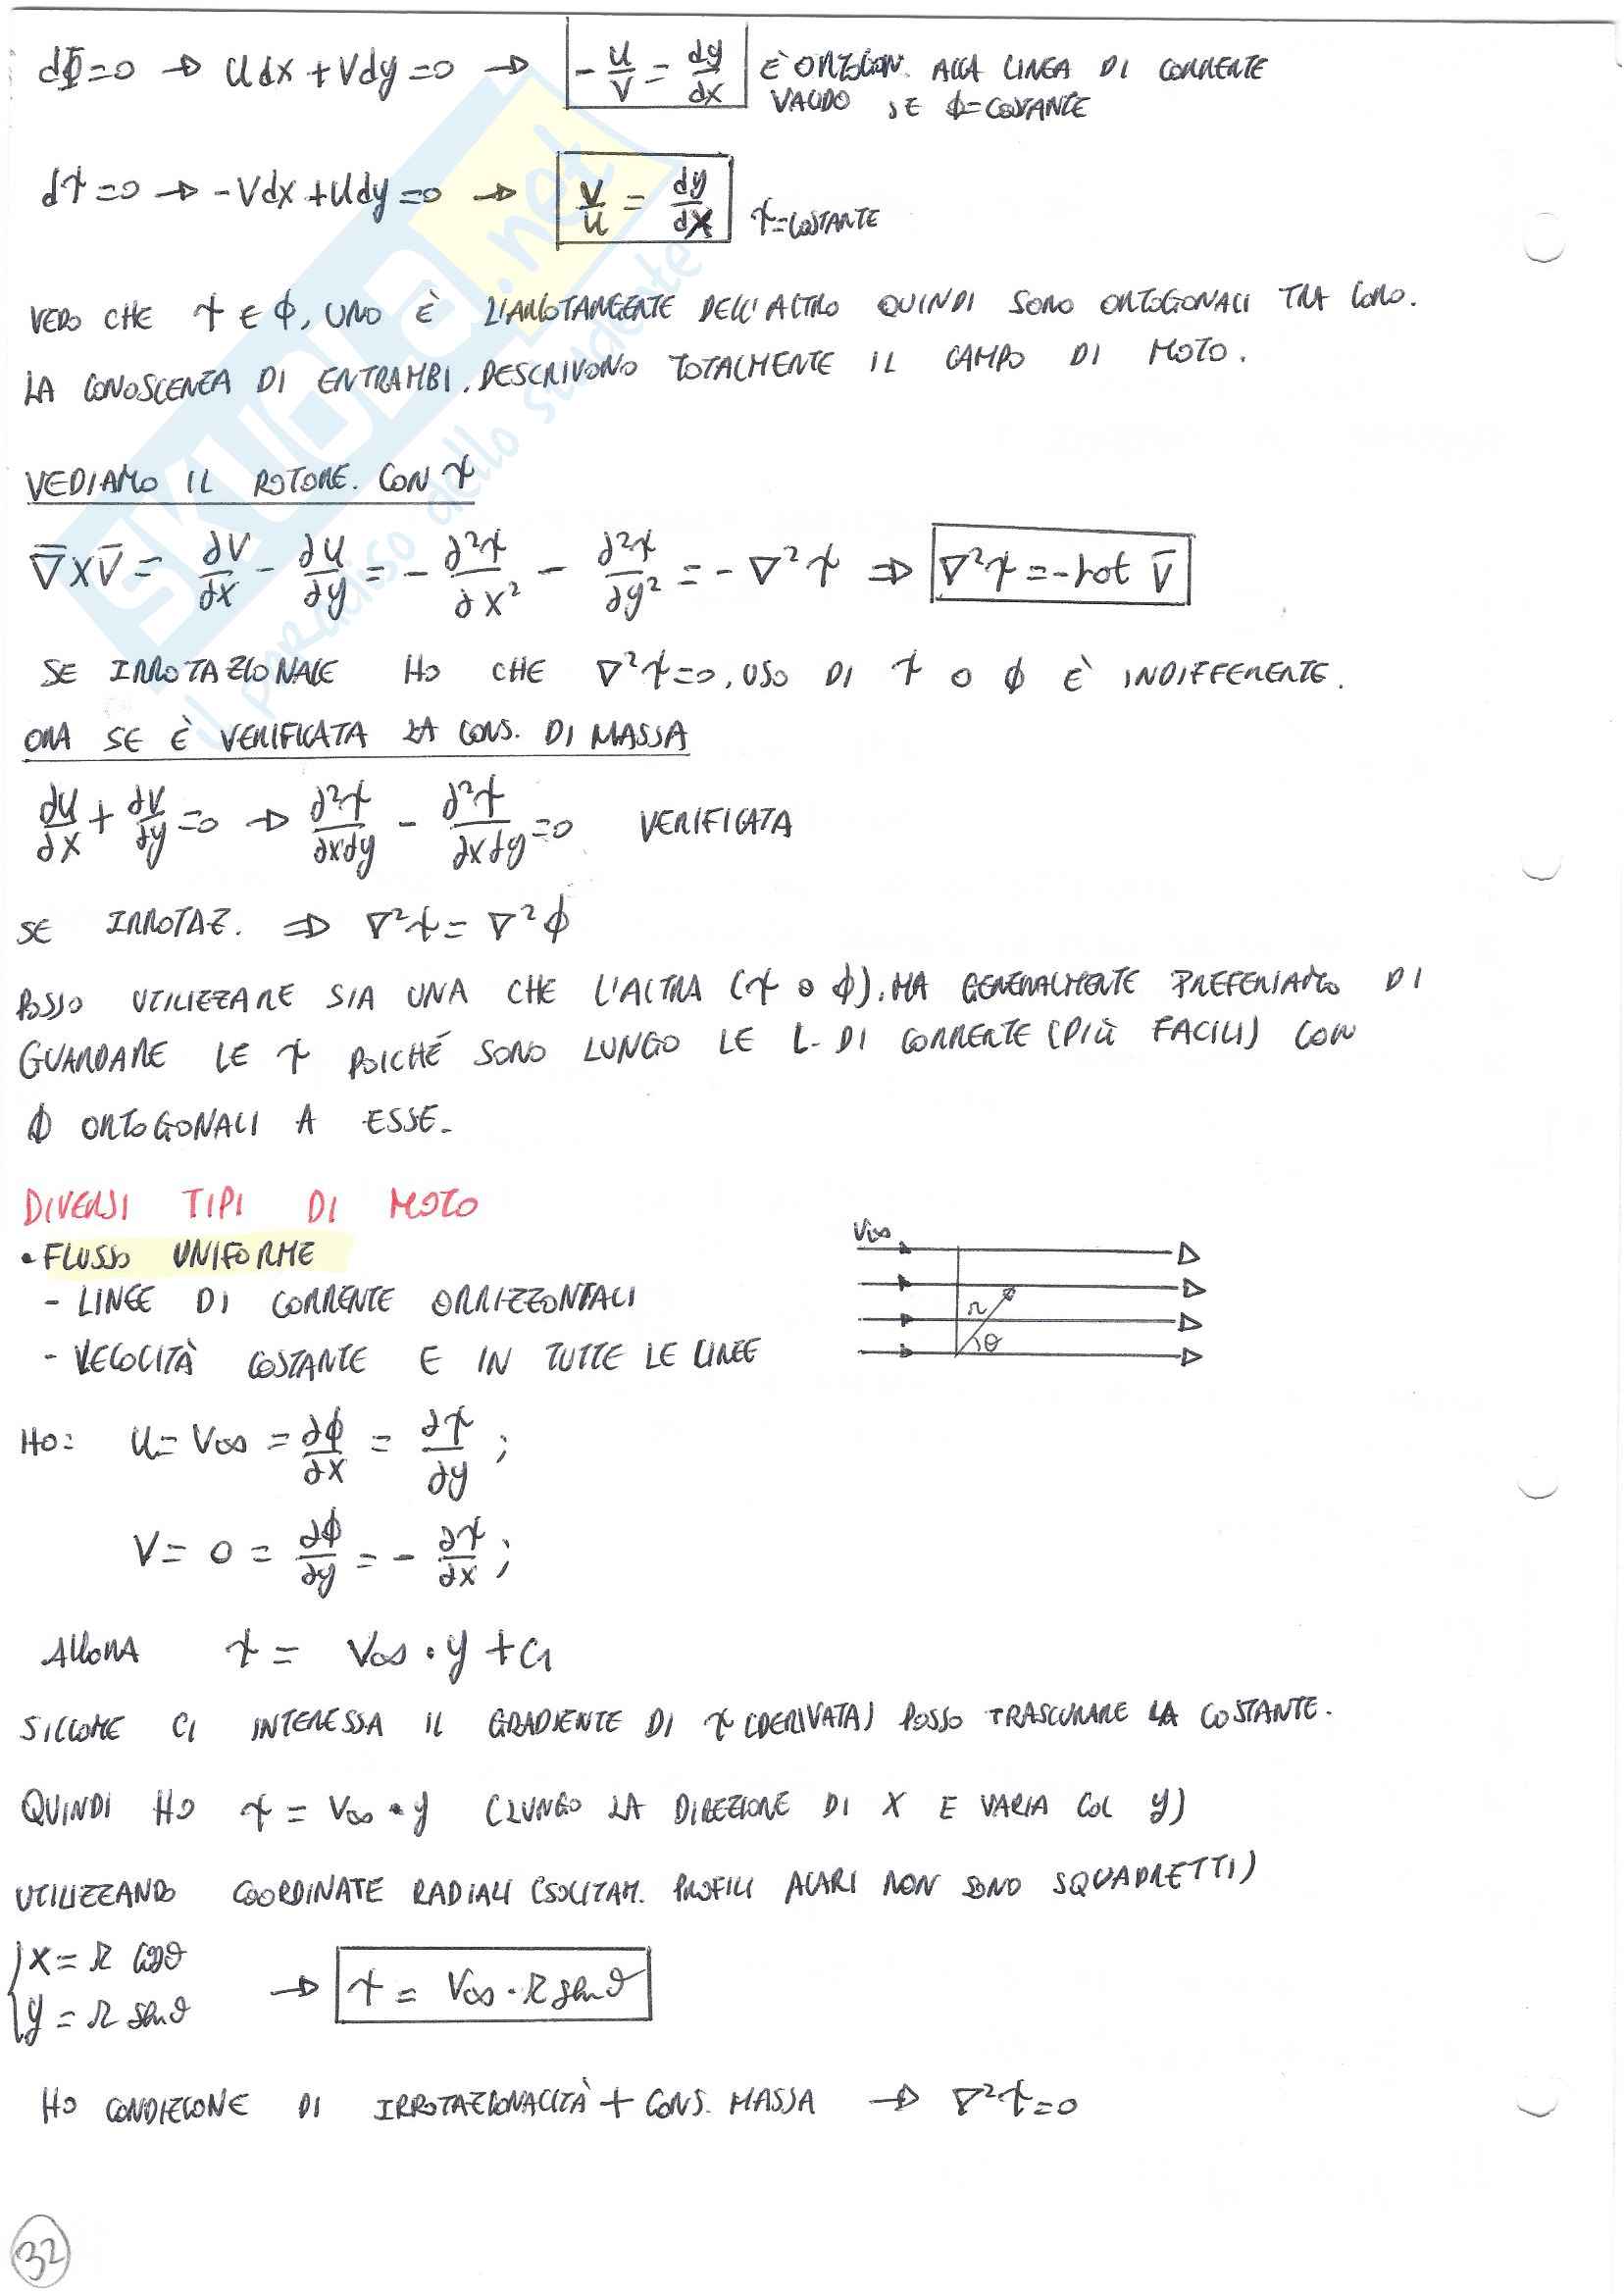 dΦ=0 → udx+vdy=0 → -u/v = dy/dx È ORTOGON. ALLA LINEA DI CORRENTE
VALIDO SE ϕ=COSTANTE
dψ=0 → -vdx+udy=0 → v/u = dy/dx ψ=COSTANTE
VEDO CHE ψ E ϕ, UNO È L'ARCOTANGENTE DELL'ALTRO QUINDI SONO ORTOGONALI TRA LORO.
LA CONOSCENZA DI ENTRAMBI, DESCRIVONO TOTALMENTE IL CAMPO DI MOTO.
VEDIAMO IL ROTORE. CON ψ
∇̄×V̄ = ∂v/∂x - ∂u/∂y = -∂²ψ/∂x² - ∂²ψ/∂y² = -∇²ψ ⇒ ∇²ψ=-rot V̄
SE IRROTAZIONALE HO CHE ∇²ψ=0, USO DI ψ O ϕ È INDIFFERENTE.
ORA SE È VERIFICATA LA CONS. DI MASSA
∂u/∂x + ∂v/∂y =0 → ∂²ψ/∂x∂y - ∂²ψ/∂x∂y =0 VERIFICATA
SE IRROTAZ. ⇒ ∇²ψ= ∇²ϕ
POSSO UTILIZZARE SIA UNA CHE L'ALTRA (ψ O ϕ), MA GENERALMENTE PREFERIAMO DI
GUARDARE LE ψ POICHÉ SONO LUNGO LE L. DI CORRENTE (PIÙ FACILI) CON
ϕ ORTOGONALI A ESSE.
DIVERSI TIPI DI MOTO
• FLUSSO UNIFORME
- LINEE DI CORRENTE ORRIZZONTALI
- VELOCITÀ COSTANTE E IN TUTTE LE LINEE
V∞
r
θ
HO: u= V∞ = ∂ϕ/∂x = ∂ψ/∂y ;
V= 0 = ∂ϕ/∂y = - ∂ψ/∂x ;
ALLORA ψ = V∞ · y + C1
SICCOME CI INTERESSA IL GRADIENTE DI ψ (DERIVATA) POSSO TRASCURARE LA COSTANTE.
QUINDI HO ψ = V∞ · y (LUNGO LA DIREZIONE DI X E VARIA COL y)
UTILIZZANDO COORDINATE RADIALI (SOLITAM. PROFILI ALARI NON SONO SQUADRETTI)
{ x = r cosθ
y = r senθ → ψ = V∞ · r senθ
HO CONDIZIONE DI IRROTAZIONALITÀ + CONS. MASSA → ∇²ψ=0
32
SKUOLA.net
il paradiso dello studente